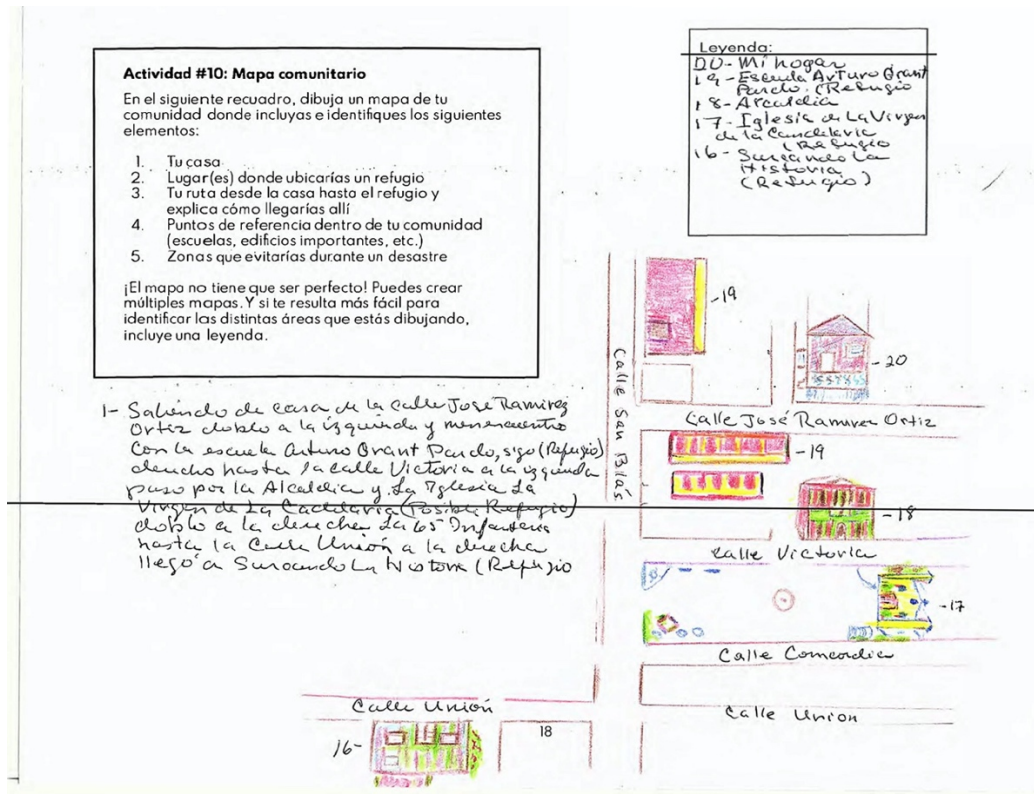 Actividad #10: Mapa comunitario
En el siguiente recuadro, dibuja un mapa de tu
comunidad donde incluyas e identifiques los siguientes
elementos:
1. Tu casa
2. Lugar(es) donde ubicarías un refugio
3. Tu ruta desde la casa hasta el refugio y
explica cómo llegarías allí
4. Puntos de referencia dentro de tu comunidad
(escuelas, edificios importantes, etc.)
5. Zonas que evitarías durante un desastre
¡El mapa no tiene que ser perfecto! Puedes crear
múltiples mapas. Y si te resulta más fácil para
identificar las distintas áreas que estás dibujando,
incluye una leyenda.
Leyenda:
20- Mi hogar
19- Escuela Arturo Grant
Pardo. (Refugio
18- Arcaldia
17- Iglesia de La Virgen
de la Candelaria
(Refugio
16- Surcando La
Historia
(Refugio)
1- Saliendo de casa de la calle José Ramirez
Ortiz doblo a la izquierda y me encuentro
Con la escuela Arturo Grant Pardo, sigo (Refugio)
derecho hasta la calle Victoria a la izquierda
paso por la Alcaldia y La Iglesia La
Virgen de La Candelaria (Posible Refugio)
doblo a la derecha La 65 Infanteria
hasta la Calle Unión a la derecha
llego a Surcando La Historia (Refugio
-19
-20
Calle San Blas
Calle José Ramirez Ortiz
-19
-18
Calle Victoria
-17
Calle Concordia
Calle Unión
Calle Union
16-
18